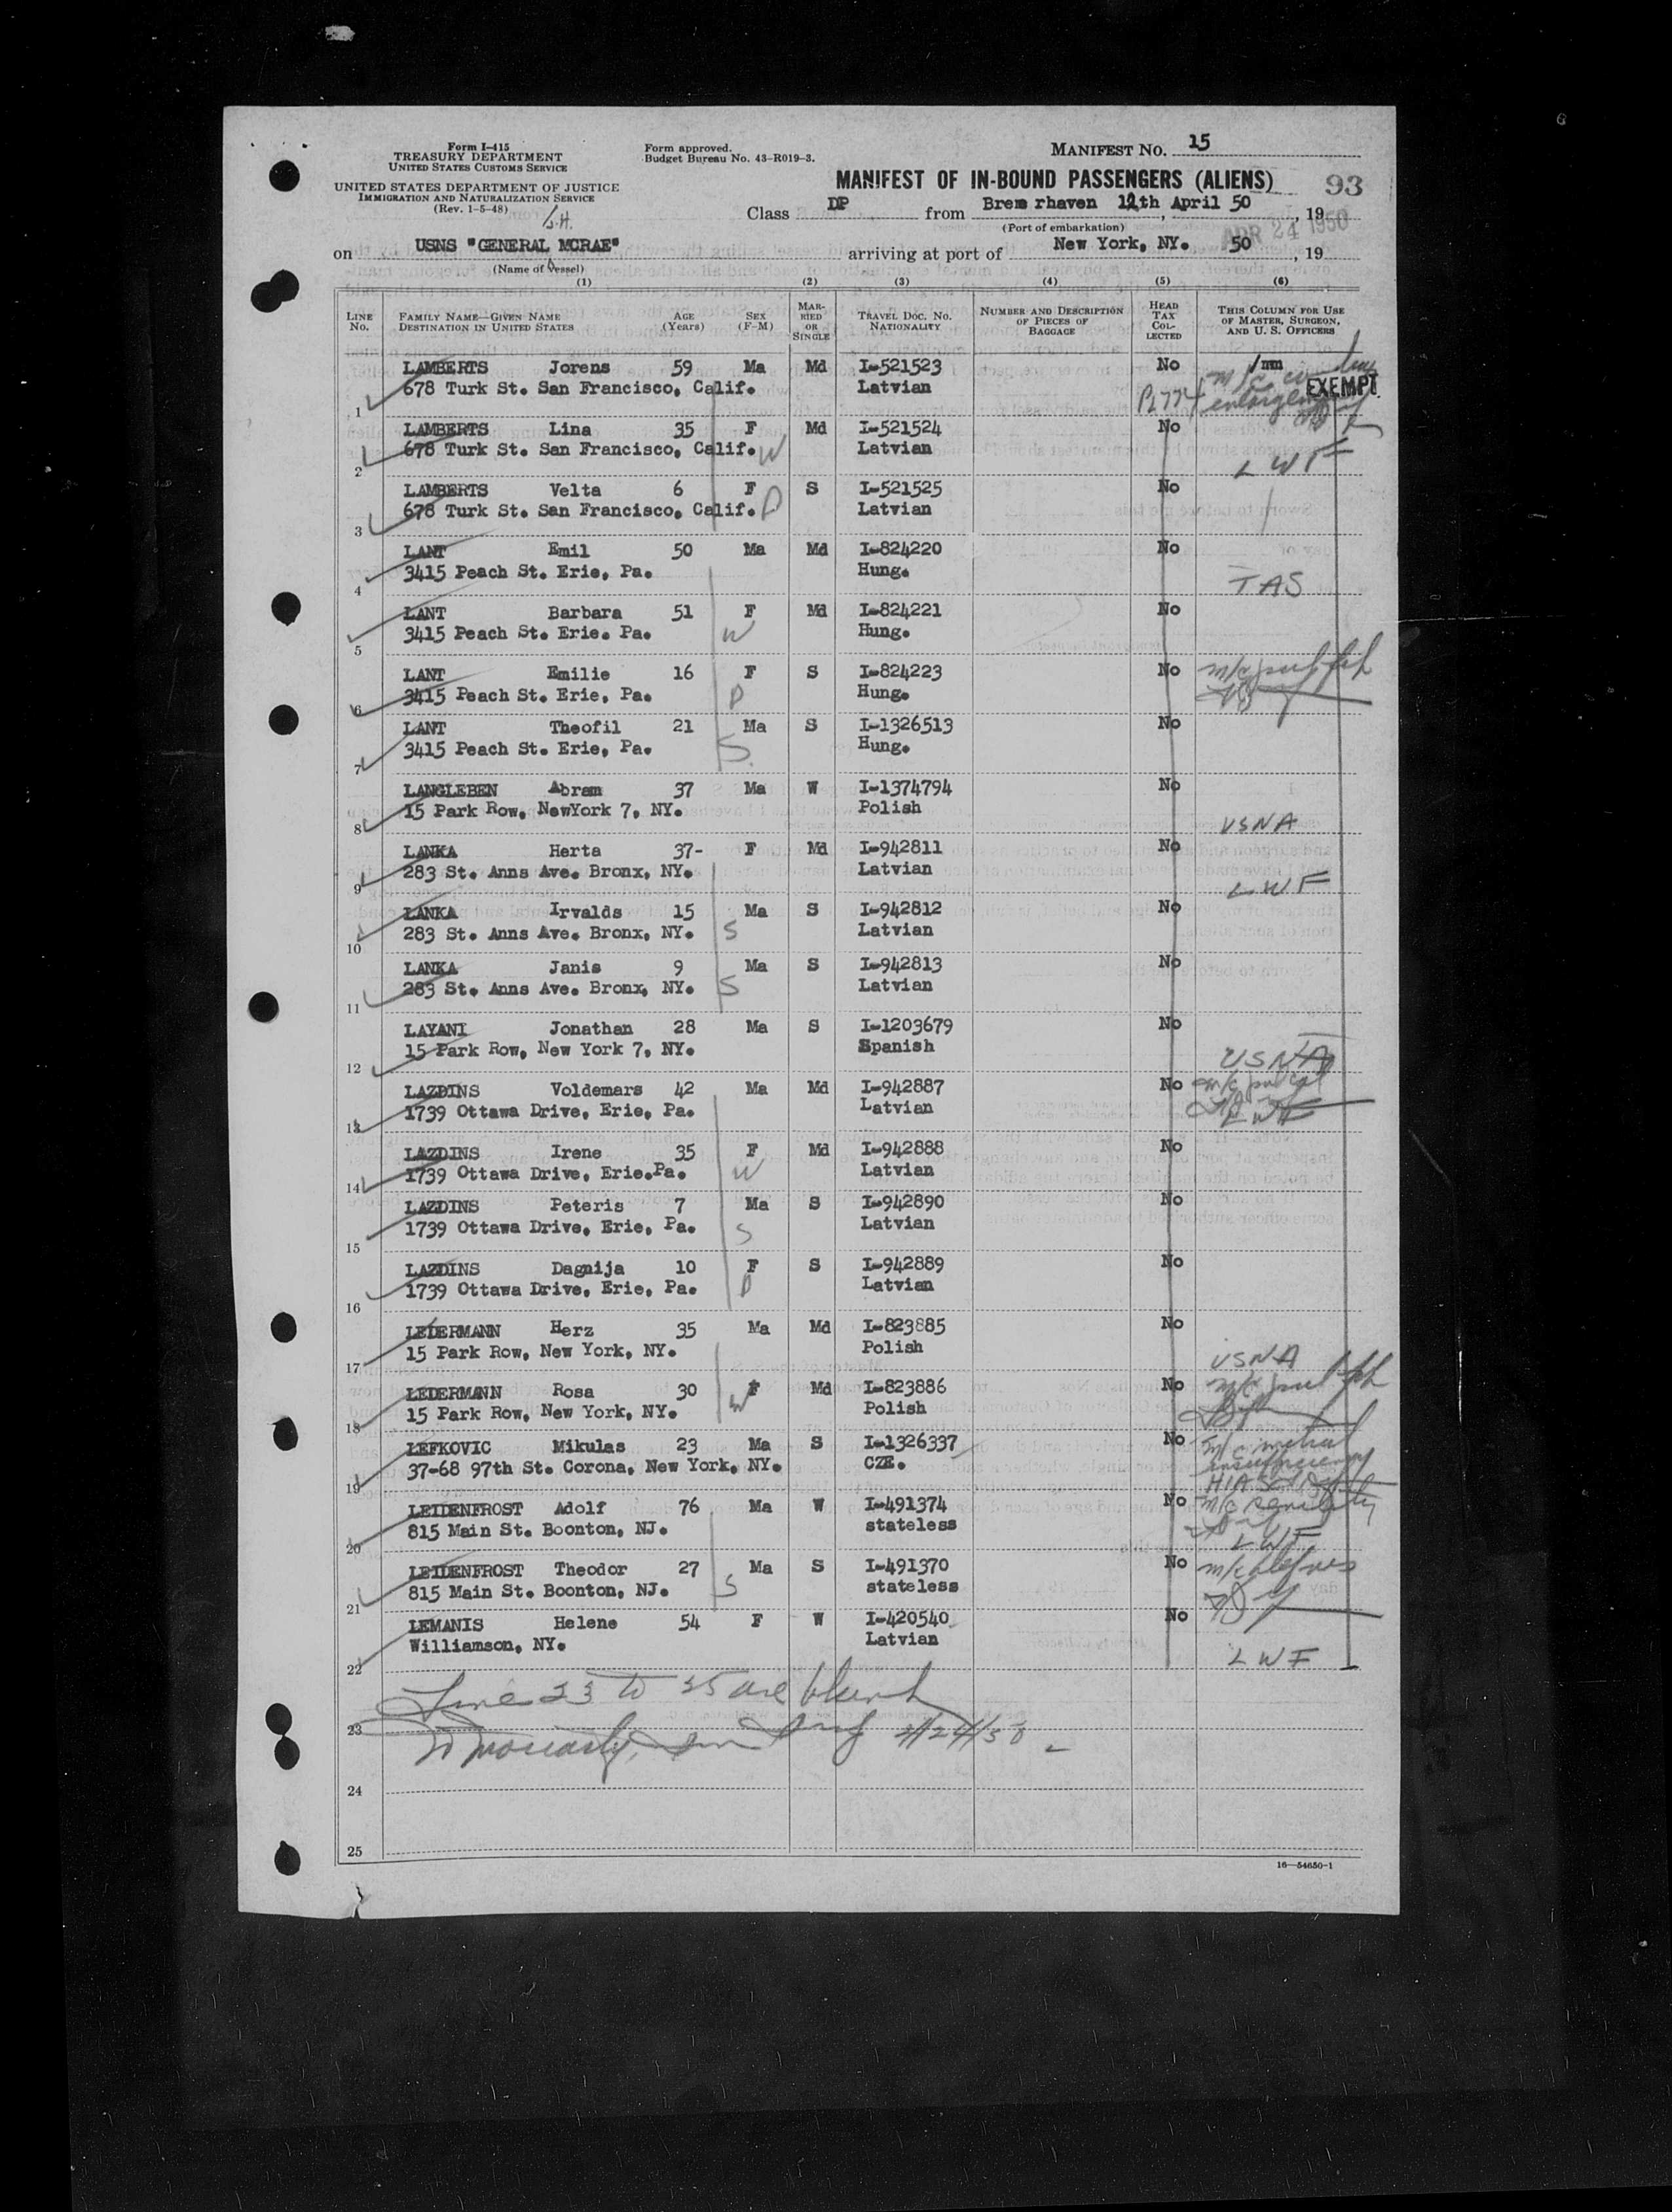 Form I-415
TREASURY DEPARTMENT
UNITED STATES CUSTOMS SERVICE
UNITED STATES DEPARTMENT OF JUSTICE
IMMIGRATION AND NATURALIZATION SERVICE
(Rev. 1-5-48)
Form approved.
Budget Bureau No. 43-R019-3.
MANIFEST NO. 15
MANIFEST OF IN-BOUND PASSENGERS (ALIENS) 93
Class DP from Brem rhaven 12th April 50, 19
(Port of embarkation)
APR 24 1950
on USNS "GENERAL MCRAE" arriving at port of New York, NY. 50, 19
(Name of Vessel)
(1) (2) (3) (4) (5) (6)
LINE NO. FAMILY NAME—GIVEN NAME DESTINATION IN UNITED STATES AGE (Years) SEX (F-M) MARRIED OR SINGLE TRAVEL DOC. NO. NATIONALITY NUMBER AND DESCRIPTION OF PIECES OF BAGGAGE HEAD TAX COLLECTED THIS COLUMN FOR USE OF MASTER, SURGEON, AND U. S. OFFICERS
LAMBERTS Jorens 59 Ma Md I-521523 No
1 678 Turk St. San Francisco, Calif. Latvian EXEMPT
LAMBERTS Lina 35 F Md I-521524 No
2 678 Turk St. San Francisco, Calif. W Latvian LWF
LAMBERTS Velta 6 F S I-521525 No
3 678 Turk St. San Francisco, Calif. D Latvian
LANT Emil 50 Ma Md I-824220 No
4 3415 Peach St. Erie, Pa. Hung. TAS
LANT Barbara 51 F Md I-824221 No
5 3415 Peach St. Erie. Pa. W Hung.
LANT Emilie 16 F S I-824223 No
6 3415 Peach St. Erie, Pa. D Hung.
LANT Theofil 21 Ma S I-1326513 No
7 3415 Peach St. Erie, Pa. S Hung.
LANGLEBEN Abram 37 Ma W I-1374794 No
8 15 Park Row, NewYork 7, NY. Polish USNA
LANKA Herta 37- F Md I-942811 No
9 283 St. Anns Ave. Bronx, NY. Latvian LWF
LANKA Irvalds 15 Ma S I-942812 No
10 283 St. Anns Ave. Bronx, NY. S Latvian
LANKA Janis 9 Ma S I-942813 No
11 283 St. Anns Ave. Bronx, NY. S Latvian
LAYANI Jonathan 28 Ma S I-1203679 No
12 15 Park Row, New York 7, NY. Spanish USNA
LAZDINS Voldemars 42 Ma Md I-942887 No
13 1739 Ottawa Drive, Erie, Pa. Latvian LWF
LAZDINS Irene 35 F Md I-942888 No
14 1739 Ottawa Drive, Erie.Pa. W Latvian
LAZDINS Peteris 7 Ma S I-942890 No
15 1739 Ottawa Drive, Erie, Pa. S Latvian
LAZDINS Dagnija 10 F S I-942889 No
16 1739 Ottawa Drive, Erie, Pa. D Latvian
LEDERMANN Herz 35 Ma Md I-823885 No
17 15 Park Row, New York, NY. Polish USNA
LEDERMANN Rosa 30 F Md I-823886 No
18 15 Park Row, New York, NY. W Polish
LEFKOVIC Mikulas 23 Ma S I-1326337 No
19 37-68 97th St. Corona, New York, NY. CZE. insufficiency HIAS
LEIDENFROST Adolf 76 Ma W I-491374 No
20 815 Main St. Boonton, NJ. stateless LWF
LEIDENFROST Theodor 27 Ma S I-491370 No
21 815 Main St. Boonton, NJ. S stateless
LEMANIS Helene 54 F W I-420540 No
22 Williamson, NY. Latvian LWF
Line 23 to 25 are blank
23
24
25
16—54650-1